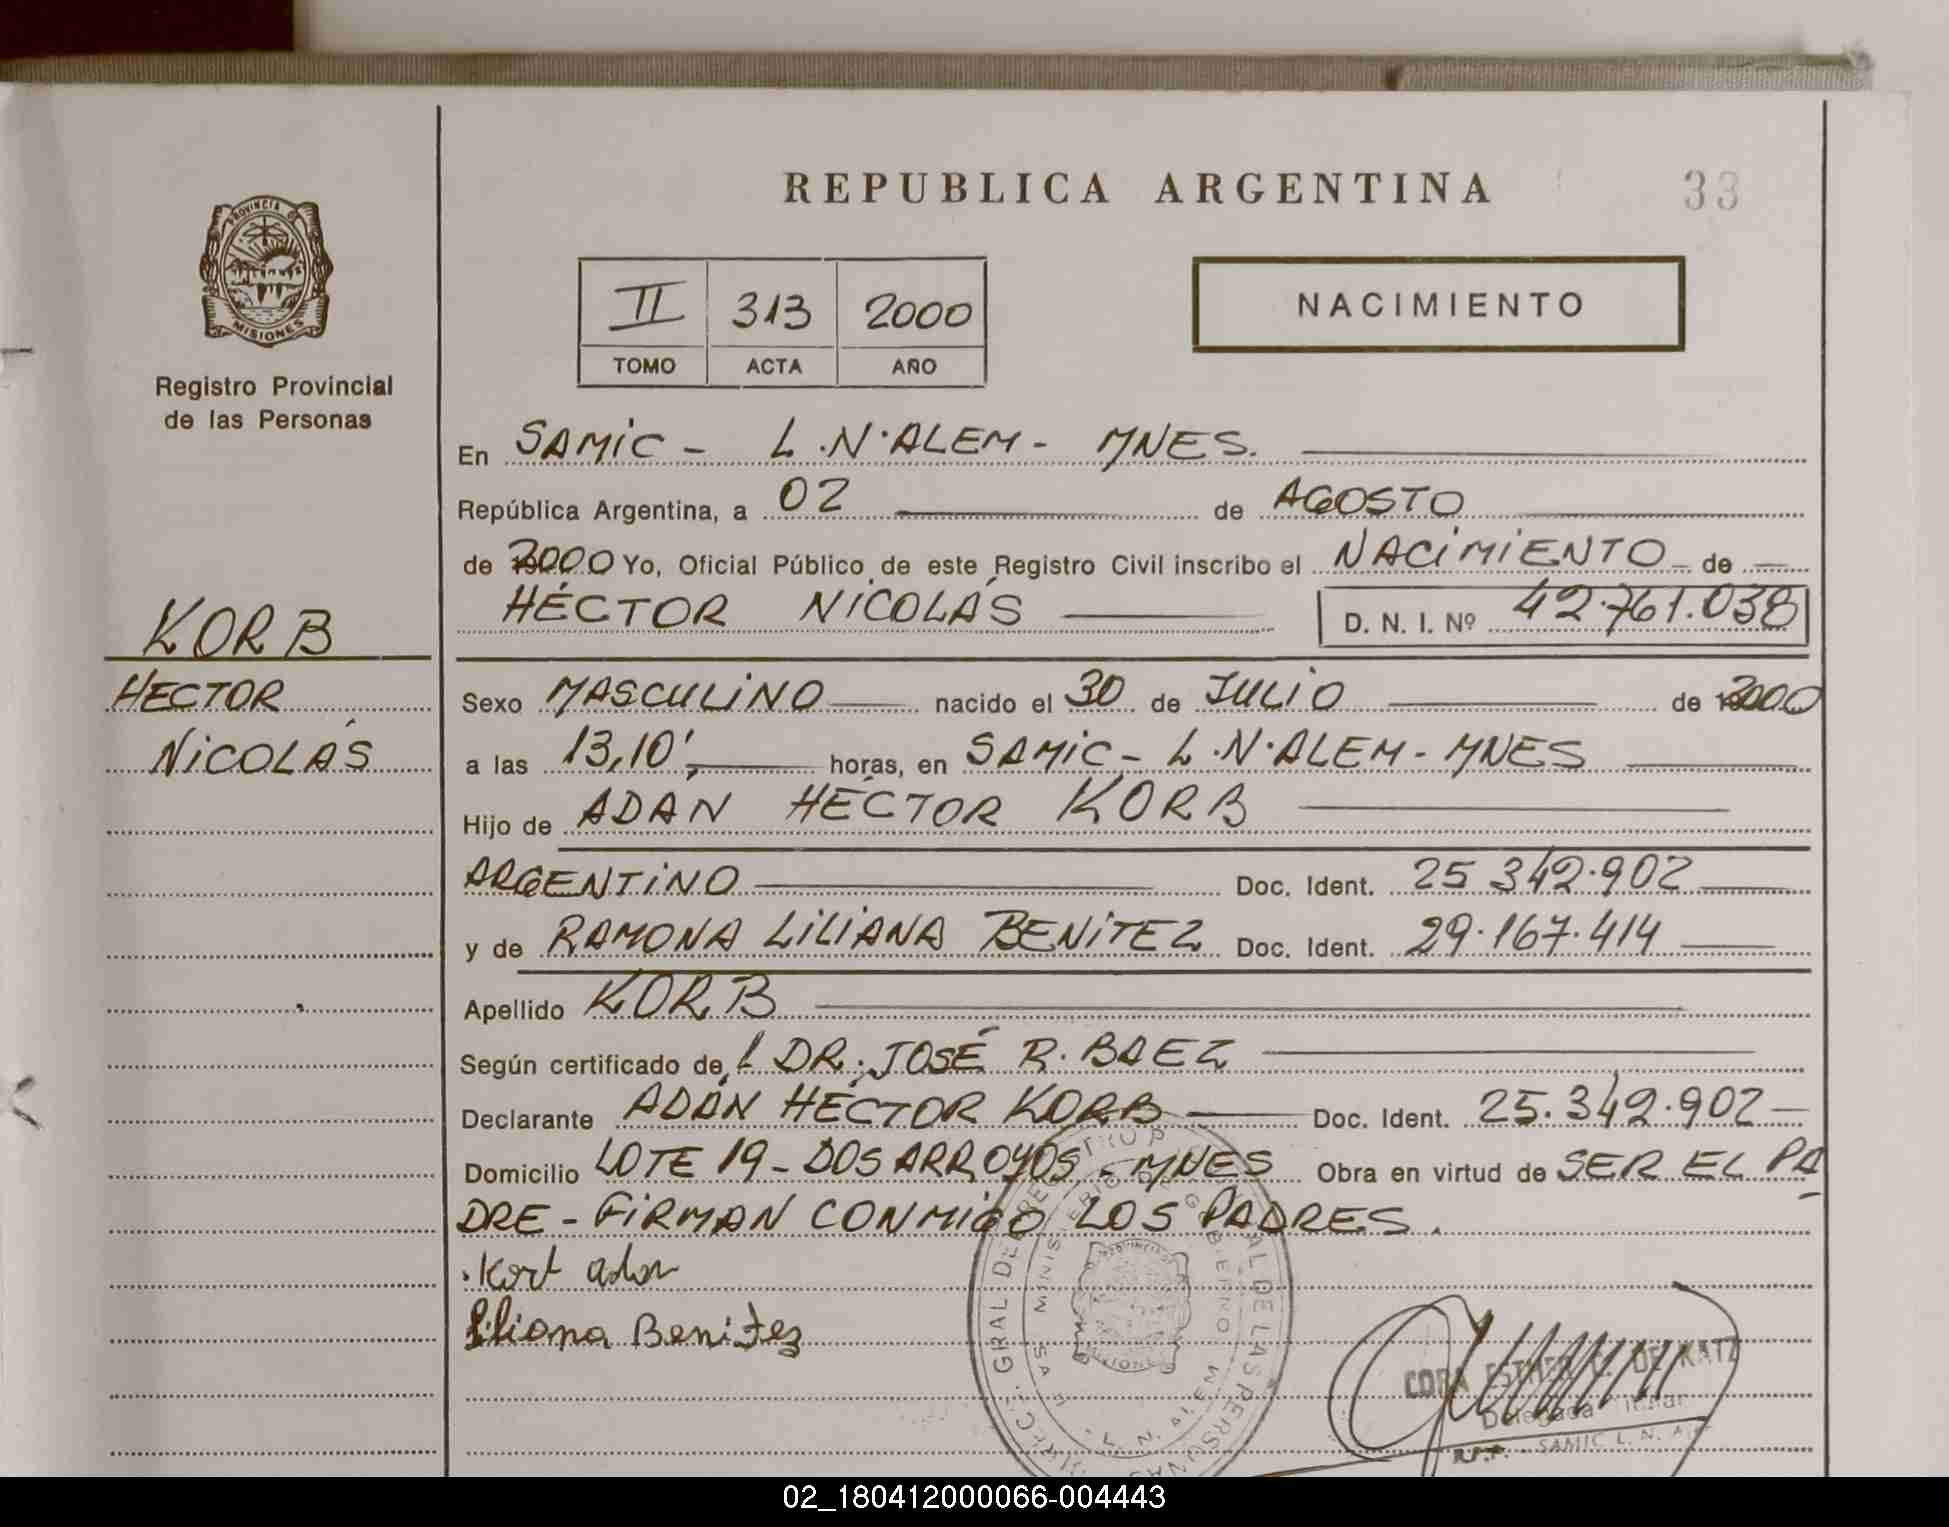 REPUBLICA ARGENTINA
33
PROVINCIA DE
MISIONES
Registro Provincial
de las Personas
II 313 2000
TOMO ACTA AÑO
NACIMIENTO
En SAMIC - L.N.ALEM - MNES.
República Argentina, a 02 de AGOSTO
de 2000 Yo, Oficial Público de este Registro Civil inscribo el NACIMIENTO de
HÉCTOR NICOLÁS D. N. I. Nº 42.761.038
KORB
HECTOR
NICOLÁS
Sexo MASCULINO nacido el 30 de JULIO de 2000
a las 13,10' horas, en SAMIC - L.N.ALEM - MNES
Hijo de ADÁN HÉCTOR KORB
ARGENTINO Doc. Ident. 25.342.902
y de RAMONA LILIANA BENITEZ Doc. Ident. 29.167.414
Apellido KORB
Según certificado de DR. JOSÉ R. BAEZ
Declarante ADÁN HÉCTOR KORB Doc. Ident. 25.342.902
Domicilio LOTE 19 - DOS ARROYOS - MNES Obra en virtud de SER EL PA
DRE - FIRMAN CONMIGO LOS PADRES.
Korb adan
Liliana Benitez
CORA ESTHER C. DE KATZ
Delegada Titular
SAMIC L. N.
02_180412000066-004443